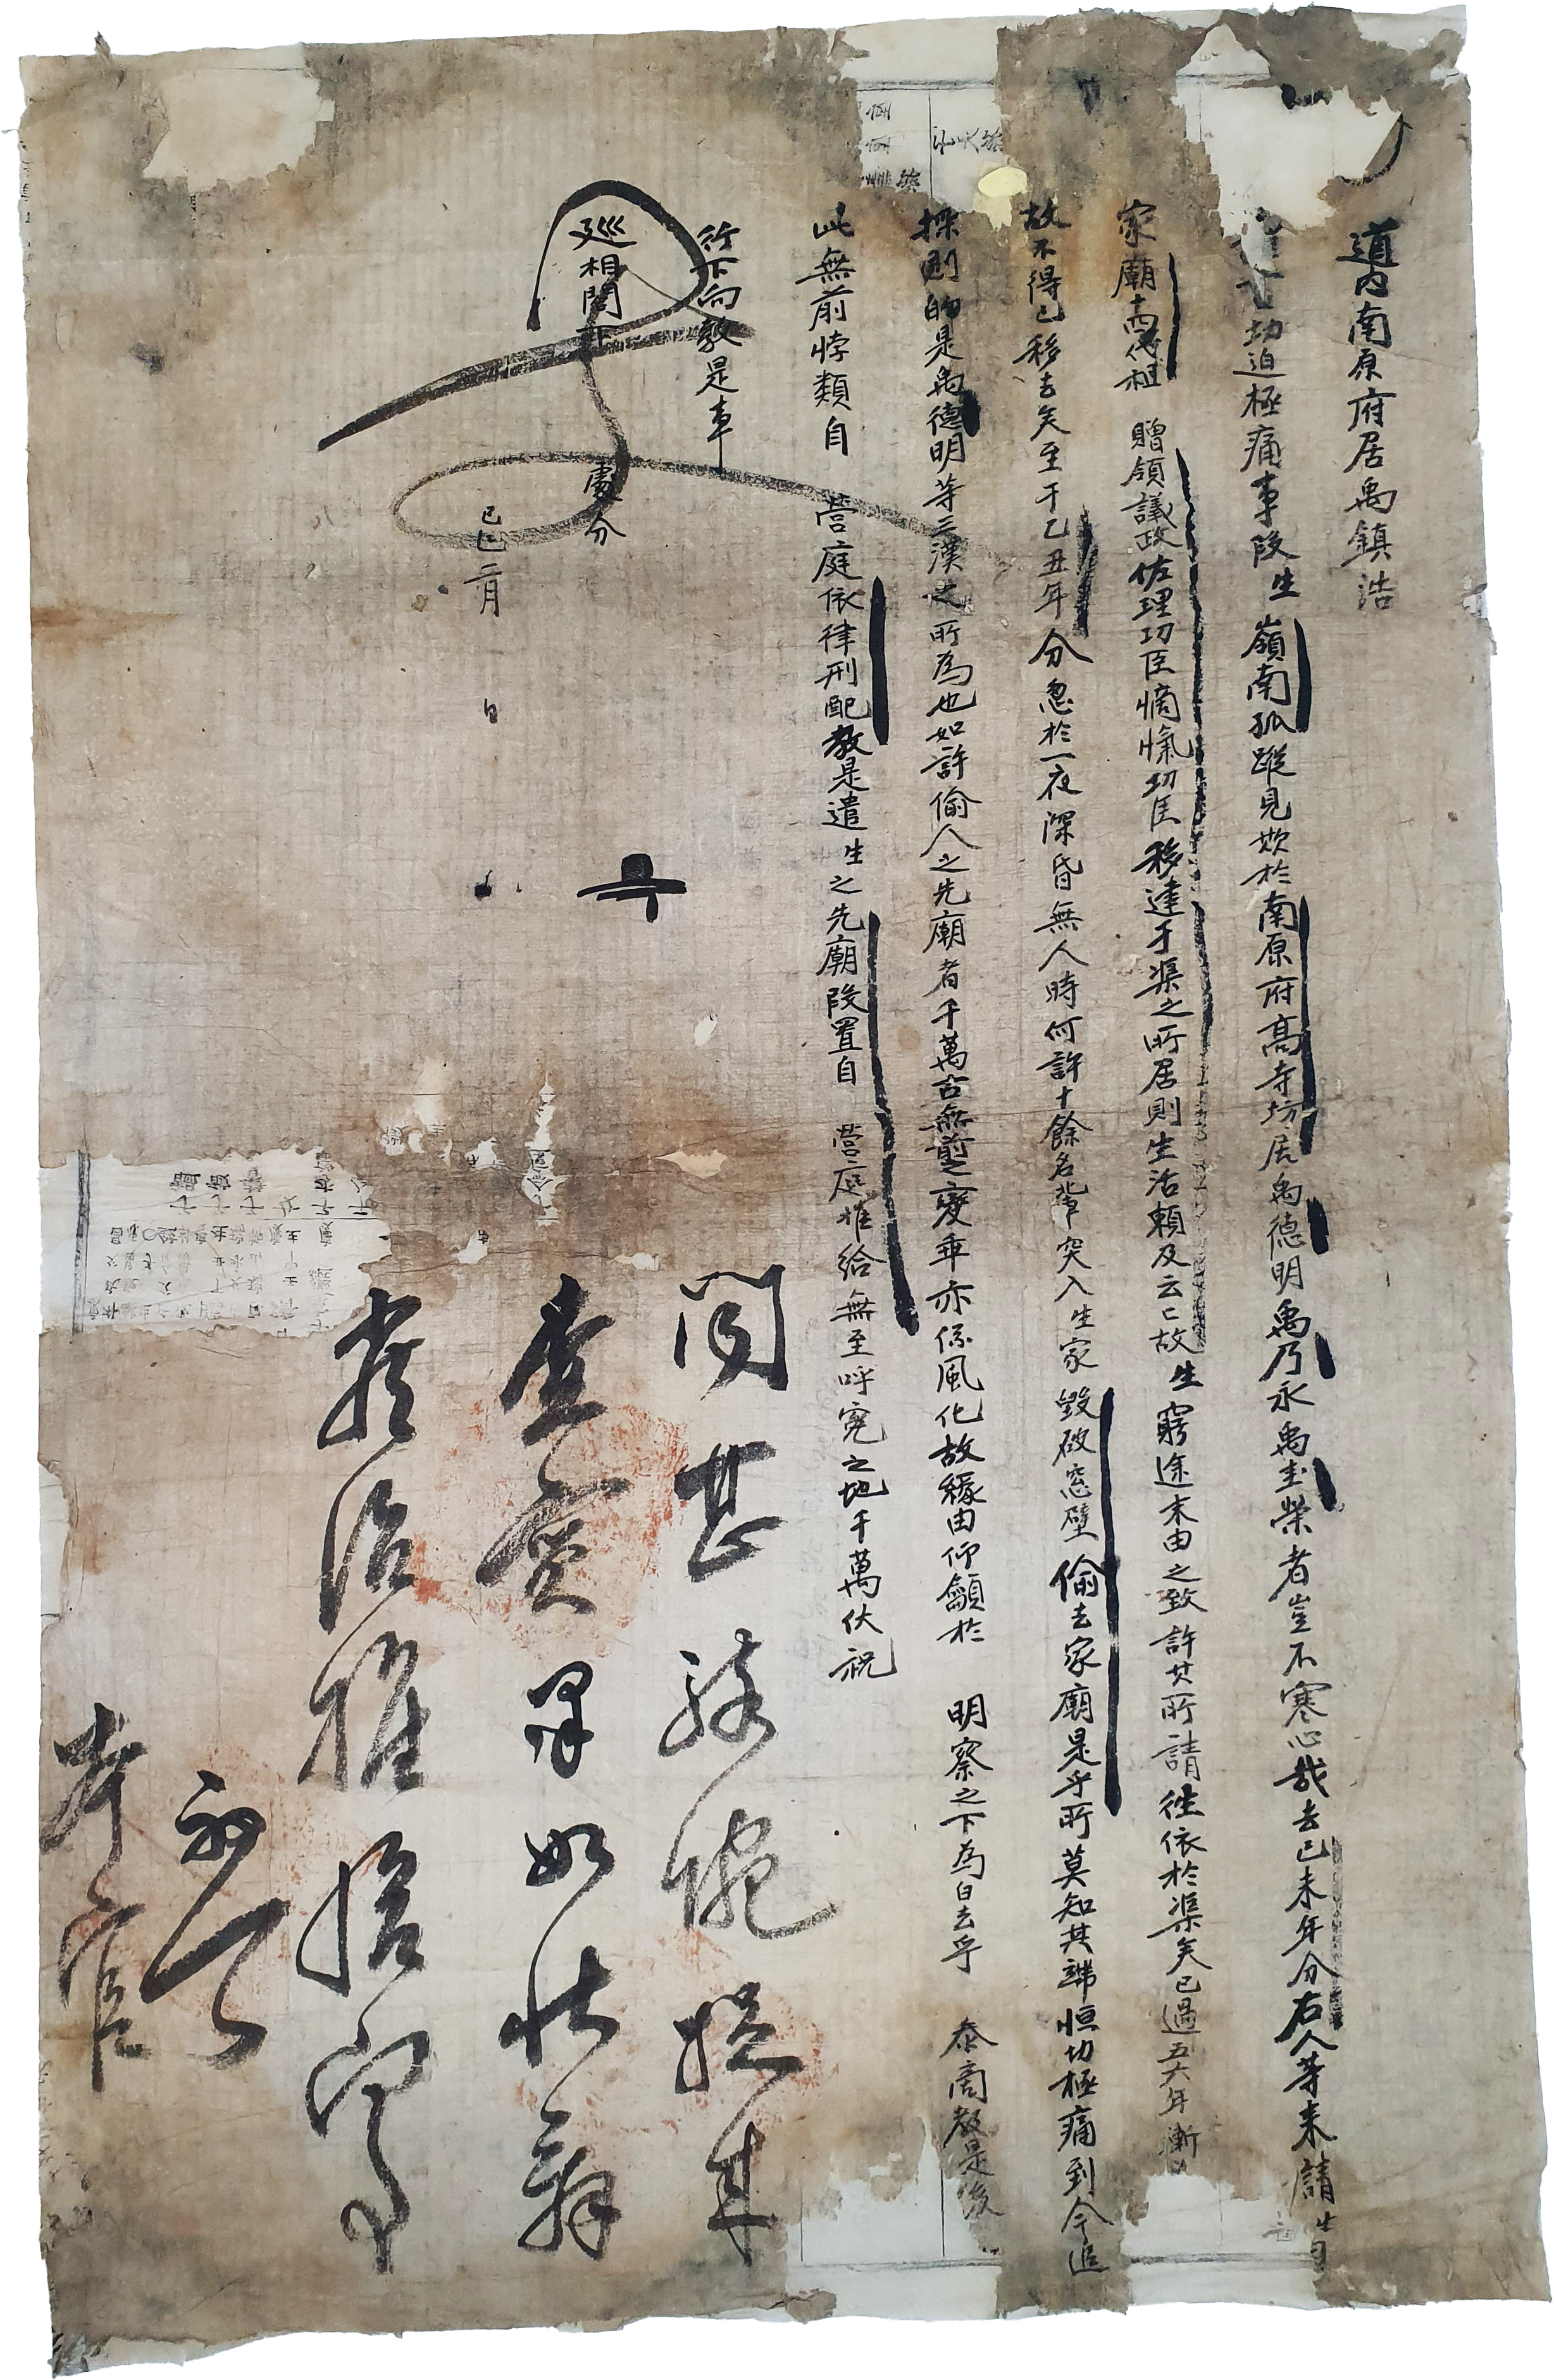 道內南原府居禹鎭浩
切迫極痛事段生嶺南孤蹤見欺於南原府高寺坊居禹德明禹乃永禹圭榮者豈不寒心哉去己未年分右人等來請生
家廟十四代祖 贈領議政佐理功臣敵愾功臣移建于渠之所居則生活賴及云云故生窮途末由之致許其所請往依於渠矣已過五六年漸
故不得已移去矣至于乙丑年分忽於一夜深昏無人時何許十餘名輩突入生家毁破窓壁偷去家廟是乎所莫知其端恒切極痛到今追
探則的是禹德明等三漢之所爲也如許偷人之先廟者千萬古無前之變乖亦係風化故緣由仰籲於 明察之下爲白去乎 叅商敎是後
此無前悖類自 營庭依律刑配敎是遣生之先廟段置自 營庭推給無至呼寃之地千萬伏祝
行下向敎是事
巡相閤下 處分
己巳二月 日
聞甚駭惋捉來
查實果如狀辭
嚴治推給宜事
初八
本官